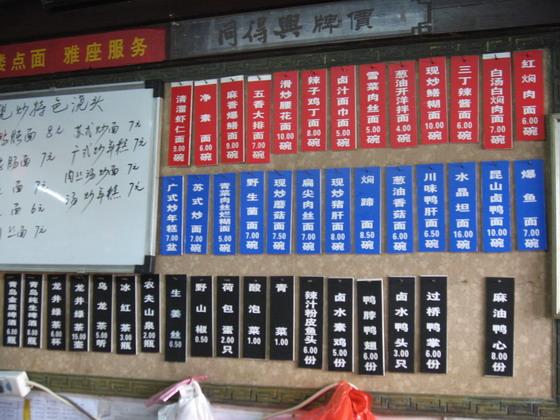 楼点面 雅座服务
同得興牌價
现炒特色浇头
鸭肠面 8元
苏式炒面 7元
肠面 7元
广式炒年糕 7元
面 7元
肉丝汤炒面 7元
面 6元
汤炒年糕 7元
丝面 7元
清溜虾仁面 10.00碗
净素面 6.00碗
麻香爆鳝面 9.00碗
五香大排面 7.00碗
滑炒腰花面 10.00碗
辣子鸡丁面 8.00碗
卤汁面巾面 5.00碗
雪菜肉丝面 5.00碗
葱油开洋拌面 4.00碗
现炒鳝糊面 10.00碗
三丁辣酱面 6.00碗
白汤白焖肉面 7.00碗
红焖肉面 6.00碗
广式炒年糕 7.00盆
苏式炒面 7.00碗
青菜肉丝烂糊面 5.00碗
野生菌面 7.00碗
现炒蘑菇面 7.50碗
扁尖肉丝面 7.00碗
现炒猪肝面 8.00碗
焖蹄面 8.50碗
葱油香菇面 6.00碗
川味鸭肝面 6.50碗
水晶虾面 16.00碗
昆山卤鸭面 10.00碗
爆鱼面 7.00碗
青岛金质啤酒 6.00瓶
青岛纯生啤酒 8.00瓶
龙井绿茶 6.00杯
龙井绿茶 15.00壶
乌龙茶 5.00听
冰红茶 3.00瓶
农夫山泉 2.00瓶
生姜丝 0.50
野山椒 0.50
荷包蛋 2.00只
酸泡菜 1.00
青菜 1.00
辣汁粉皮鱼头 6.00份
卤水素鸡 5.00份
鸭脖鸭翅 6.00份
卤水鸭头 3.00只
过桥鸭掌 6.00份
麻油鸭心 8.00份